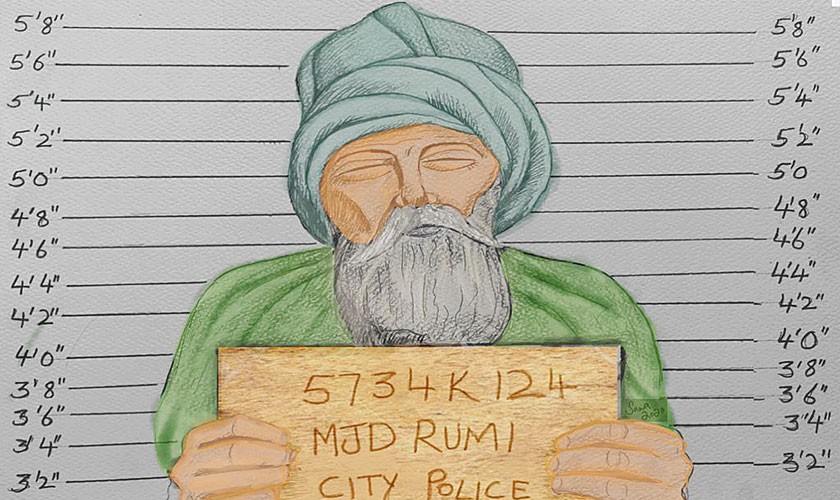 5'8" 5'8"
5'6" 5'6"
5'4" 5'4"
5'2" 5'2"
5'0" 5'0
4'8" 4'8"
4'6" 4'6"
4'4" 4'4"
4'2" 4'2"
4'0" 4'0"
3'8" 3'8"
3'6" 3'6"
3'4" 3'4"
3'2" 3'2"
5734K 124
MJD RUMI
CITY POLICE
2020